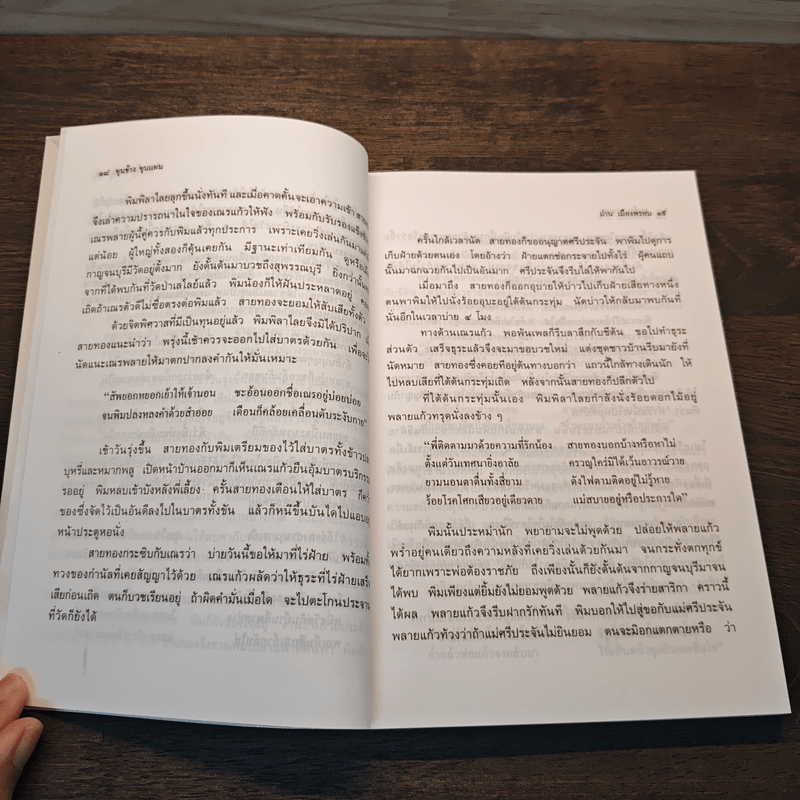 ๑๘ ขุนช้าง ขุนแผน
พิมพิลาไลยลุกขึ้นนั่งทันที และเมื่อคาดคั้นจะเอาความเข้า
จึงเล่าความปรารถนาในใจของเณรแก้วให้ฟัง พร้อมกับรับรองแข็งขัน
เณรพลายผู้นี้คู่ควรกับพิมแล้วทุกประการ เพราะเคยวิ่งเล่นกันมา
แต่น้อย ผู้ใหญ่ทั้งสองก็คุ้นเคยกัน มีฐานะเท่าเทียมกัน ดูหรือ
กาญจนบุรีมีวัดอยู่ตั้งมาก ยังดั้นด้นมาบวชถึงสุพรรณบุรี ยิ่งกว่านั้น
จากที่ได้พบกันที่วัดป่าเลไลยแล้ว พิมน้องก็ให้ผันประหลาดอยู่
เถิดถ้าเณรตัวดีไม่ซื่อตรงต่อพิมแล้ว สายทองจะยอมให้สับเสียทั้งตัว
ด้วยจิตพิศวาสที่มีเป็นทุนอยู่แล้ว พิมพิลาไลยจึงมิได้ปริปาก
สายทองแนะนำว่า พรุ่งนี้เช้าควรจะออกไปใส่บาตรด้วยกัน เพื่อจะ
นัดแนะเณรพลายให้มาตกปากลงคำกันให้มั่นเหมาะ
“สัพยอกหยอกเย้าให้เจ้านอน ชะอ้อนออกชื่อเณรอยู่บ่อยบ่อย
จนพิมปลงหลงคำด้วยสำออย เดือนก็คล้อยเคลื่อนดับระงับกาย”
เช้าวันรุ่งขึ้น สายทองกับพิมเตรียมของไว้ใส่บาตรทั้งข้าว
บุหรี่และหมากพลู เปิดหน้าบ้านออกมาก็เห็นเณรแก้วยืนอุ้มบาตรบริกรรม
รออยู่ พิมหลบเข้าบังหลังพี่เลี้ยง ครั้นสายทองเตือนให้ใส่บาตร ก็
ของซึ่งจัดไว้เป็นอันดีลงไปในบาตรทั้งขัน แล้วก็หนีขึ้นบันไดไปแอบ
หน้าประตูหอนั่ง
สายทองกระซิบกับเณรว่า บ่ายวันนี้ขอให้มาที่ไร่ฝ้าย พร้อม
ทวงของกำนัลที่เคยสัญญาไว้ด้วย เณรแก้วผลัดว่าให้ธุระที่ไร่ฝ้ายเสร็จ
เสียก่อนเถิด ตนก็บวชเรียนอยู่ ถ้าผิดคำมั่นเมื่อใด จะไปตะโกนประจาน
ที่วัดก็ยังได้
ม่าน เมืองพรหม ๑๙
ครั้นใกล้เวลานัด สายทองก็ขออนุญาตศรีประจัน พาพิมไปดูการ
เก็บฝ้ายด้วยตนเอง โดยอ้างว่า ฝ้ายแตกช่อกระจายไปทั้งไร่ ผู้คนแถบ
นั้นมาฉกฉวยกันไปเป็นอันมาก ศรีประจันจึงรีบไล่ให้พากันไป
เมื่อมาถึง สายทองก็ออกอุบายให้บ่าวไปเก็บฝ้ายเสียทางหนึ่ง
ตนพาพิมให้ไปนั่งร้อยอุบะอยู่ใต้ต้นกระทุ่ม นัดบ่าวให้กลับมาพบกันที่
นั่นอีกในเวลาบ่าย ๔ โมง
ทางด้านเณรแก้ว พอพ้นเพลก็รีบลาสึกกับชีต้น ขอไปทำธุระ
ส่วนตัว เสร็จธุระแล้วจึงจะมาขอบวชใหม่ แต่งชุดชาวบ้านรีบมายังที่
นัดหมาย สายทองซึ่งคอยทีอยู่ต้นทางบอกว่า แถวนี้ใกล้ทางเดินนัก ให้
ไปหลบเสียที่ใต้ต้นกระทุ่มเถิด หลังจากนั้นสายทองก็ปลีกตัวไป
ที่ใต้ต้นกระทุ่มนั้นเอง พิมพิลาไลยกำลังนั่งร้อยดอกไม้อยู่
พลายแก้วทรุดนั่งลงข้าง ๆ
“พี่ติดตามมาด้วยความที่รักน้อง สายทองบอกบ้างหรือหาไม่
ตั้งแต่วันเทศนายิ่งอาลัย ครวญใคร่มิได้เว้นอาวรณ์วาย
ยามนอนตาตื่นทั้งสี่ยาม ดังไฟตามติดอยู่ไม่รู้หาย
ร้อยโรคโศกเสียวอยู่เดียวดาย แม่สบายอยู่หรือประการใด”
พิมนั้นประหม่านัก พยายามจะไม่พูดด้วย ปล่อยให้พลายแก้ว
พร่ำอยู่คนเดียวถึงความหลังที่เคยวิ่งเล่นด้วยกันมา จนกระทั่งตกทุกข์
ได้ยากเพราะพ่อต้องราชภัย ถึงเพียงนั้นก็ยังดั้นด้นจากกาญจนบุรีมาจน
ได้พบ พิมเพียงแต่ยิ้มยังไม่ยอมพูดด้วย พลายแก้วจึงร่ายสาริกา คราวนี้
ได้ผล พลายแก้วจึงรีบฝากรักทันที พิมบอกให้ไปสู่ขอกับแม่ศรีประจัน
พลายแก้วท้วงว่าถ้าแม่ศรีประจันไม่ยินยอม ตนจะมิอกแตกตายหรือ ว่า